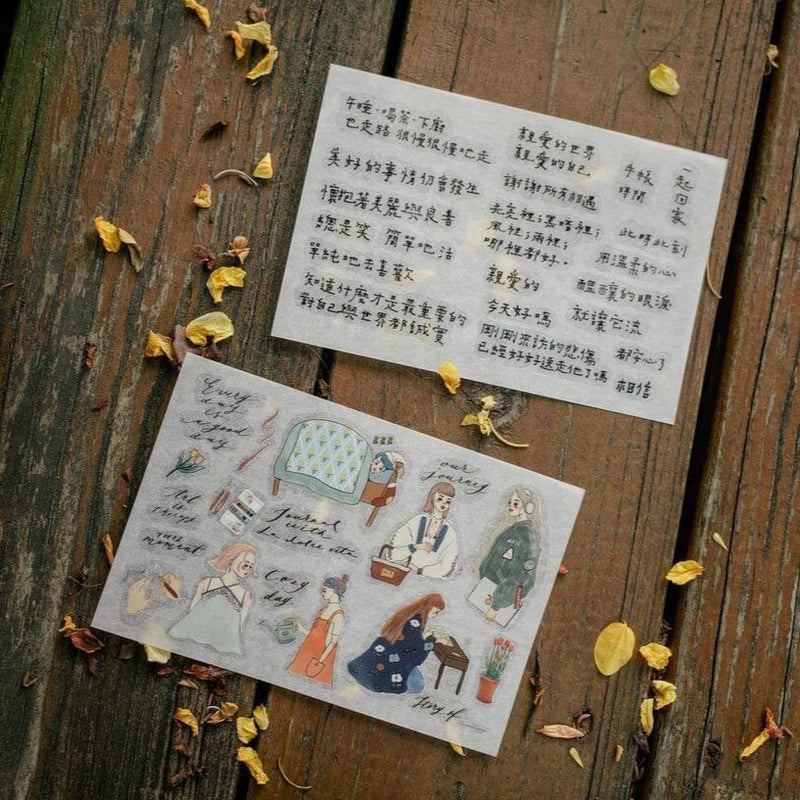 午睡·喝茶·下廚
也走路 很慢很慢地走
美好的事情切會發生
懷抱著美麗與良善
總是笑 簡單地活
單純地去喜歡
知道什麼才是最重要的
對自己與世界都誠實
親愛的世界
親愛的自己
謝謝所有相遇
光亮裡；黑暗裡；
風裡；雨裡；
哪裡都好。
親愛的
今天好嗎
剛剛來訪的悲傷
已經好好送走他了嗎
手帳
時間
一起回家
此時此刻
用溫柔的心
醞釀的眼淚
就讓它流
都安心了
相信
Every
day
is
a good
day
our
journey
Art
is
therapy
Journal
with
La dolce vita
this
moment
Cozy
day
Story of